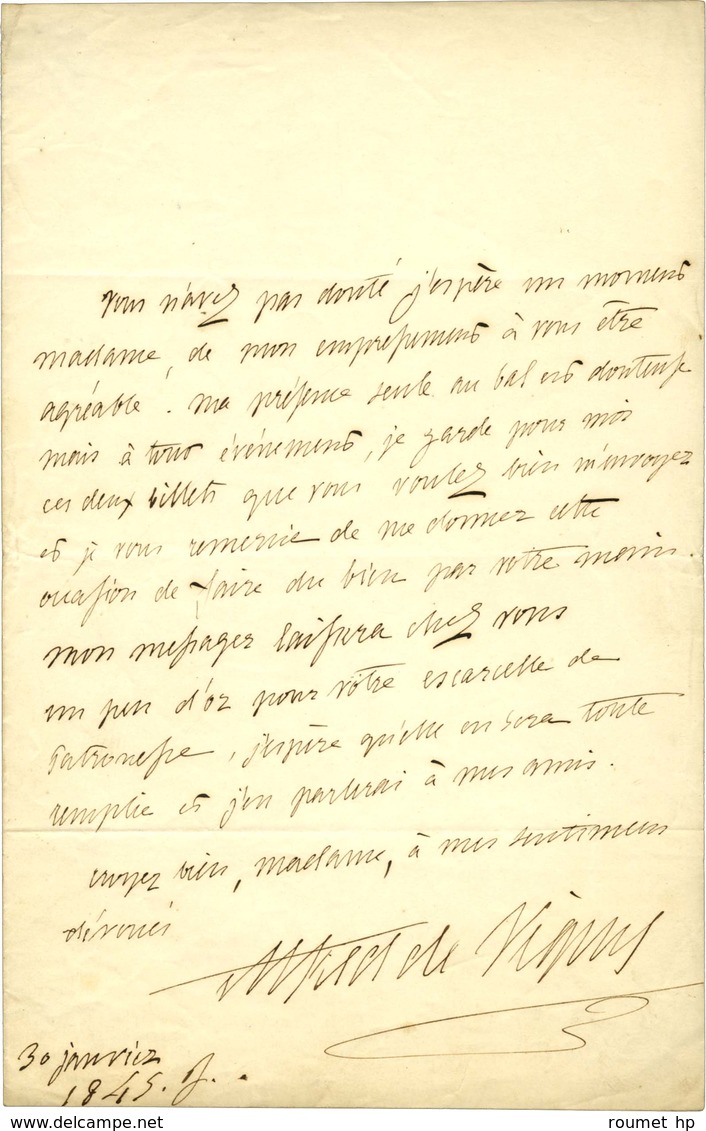 vous n'avez pas douté j'espère un moment
madame, de mon empressement à vous être
agréable. ma présence seule au bal est douteuse
mais à tout événement, je garde pour moi
ces deux billets que vous voulez bien m'envoyer
et je vous remercie de me donner cette
occasion de faire du bien par votre main.
mon messager laissera chez vous
un peu d'or pour votre escarcelle de
Patronesse, j'espère qu'elle en sera toute
remplie et j'en parlerai à mes amis.
croyez bien, madame, à mes sentimens
dévoués
Alfred de Vigny
30 janvier
1845.
delcampe.net
roumet hp